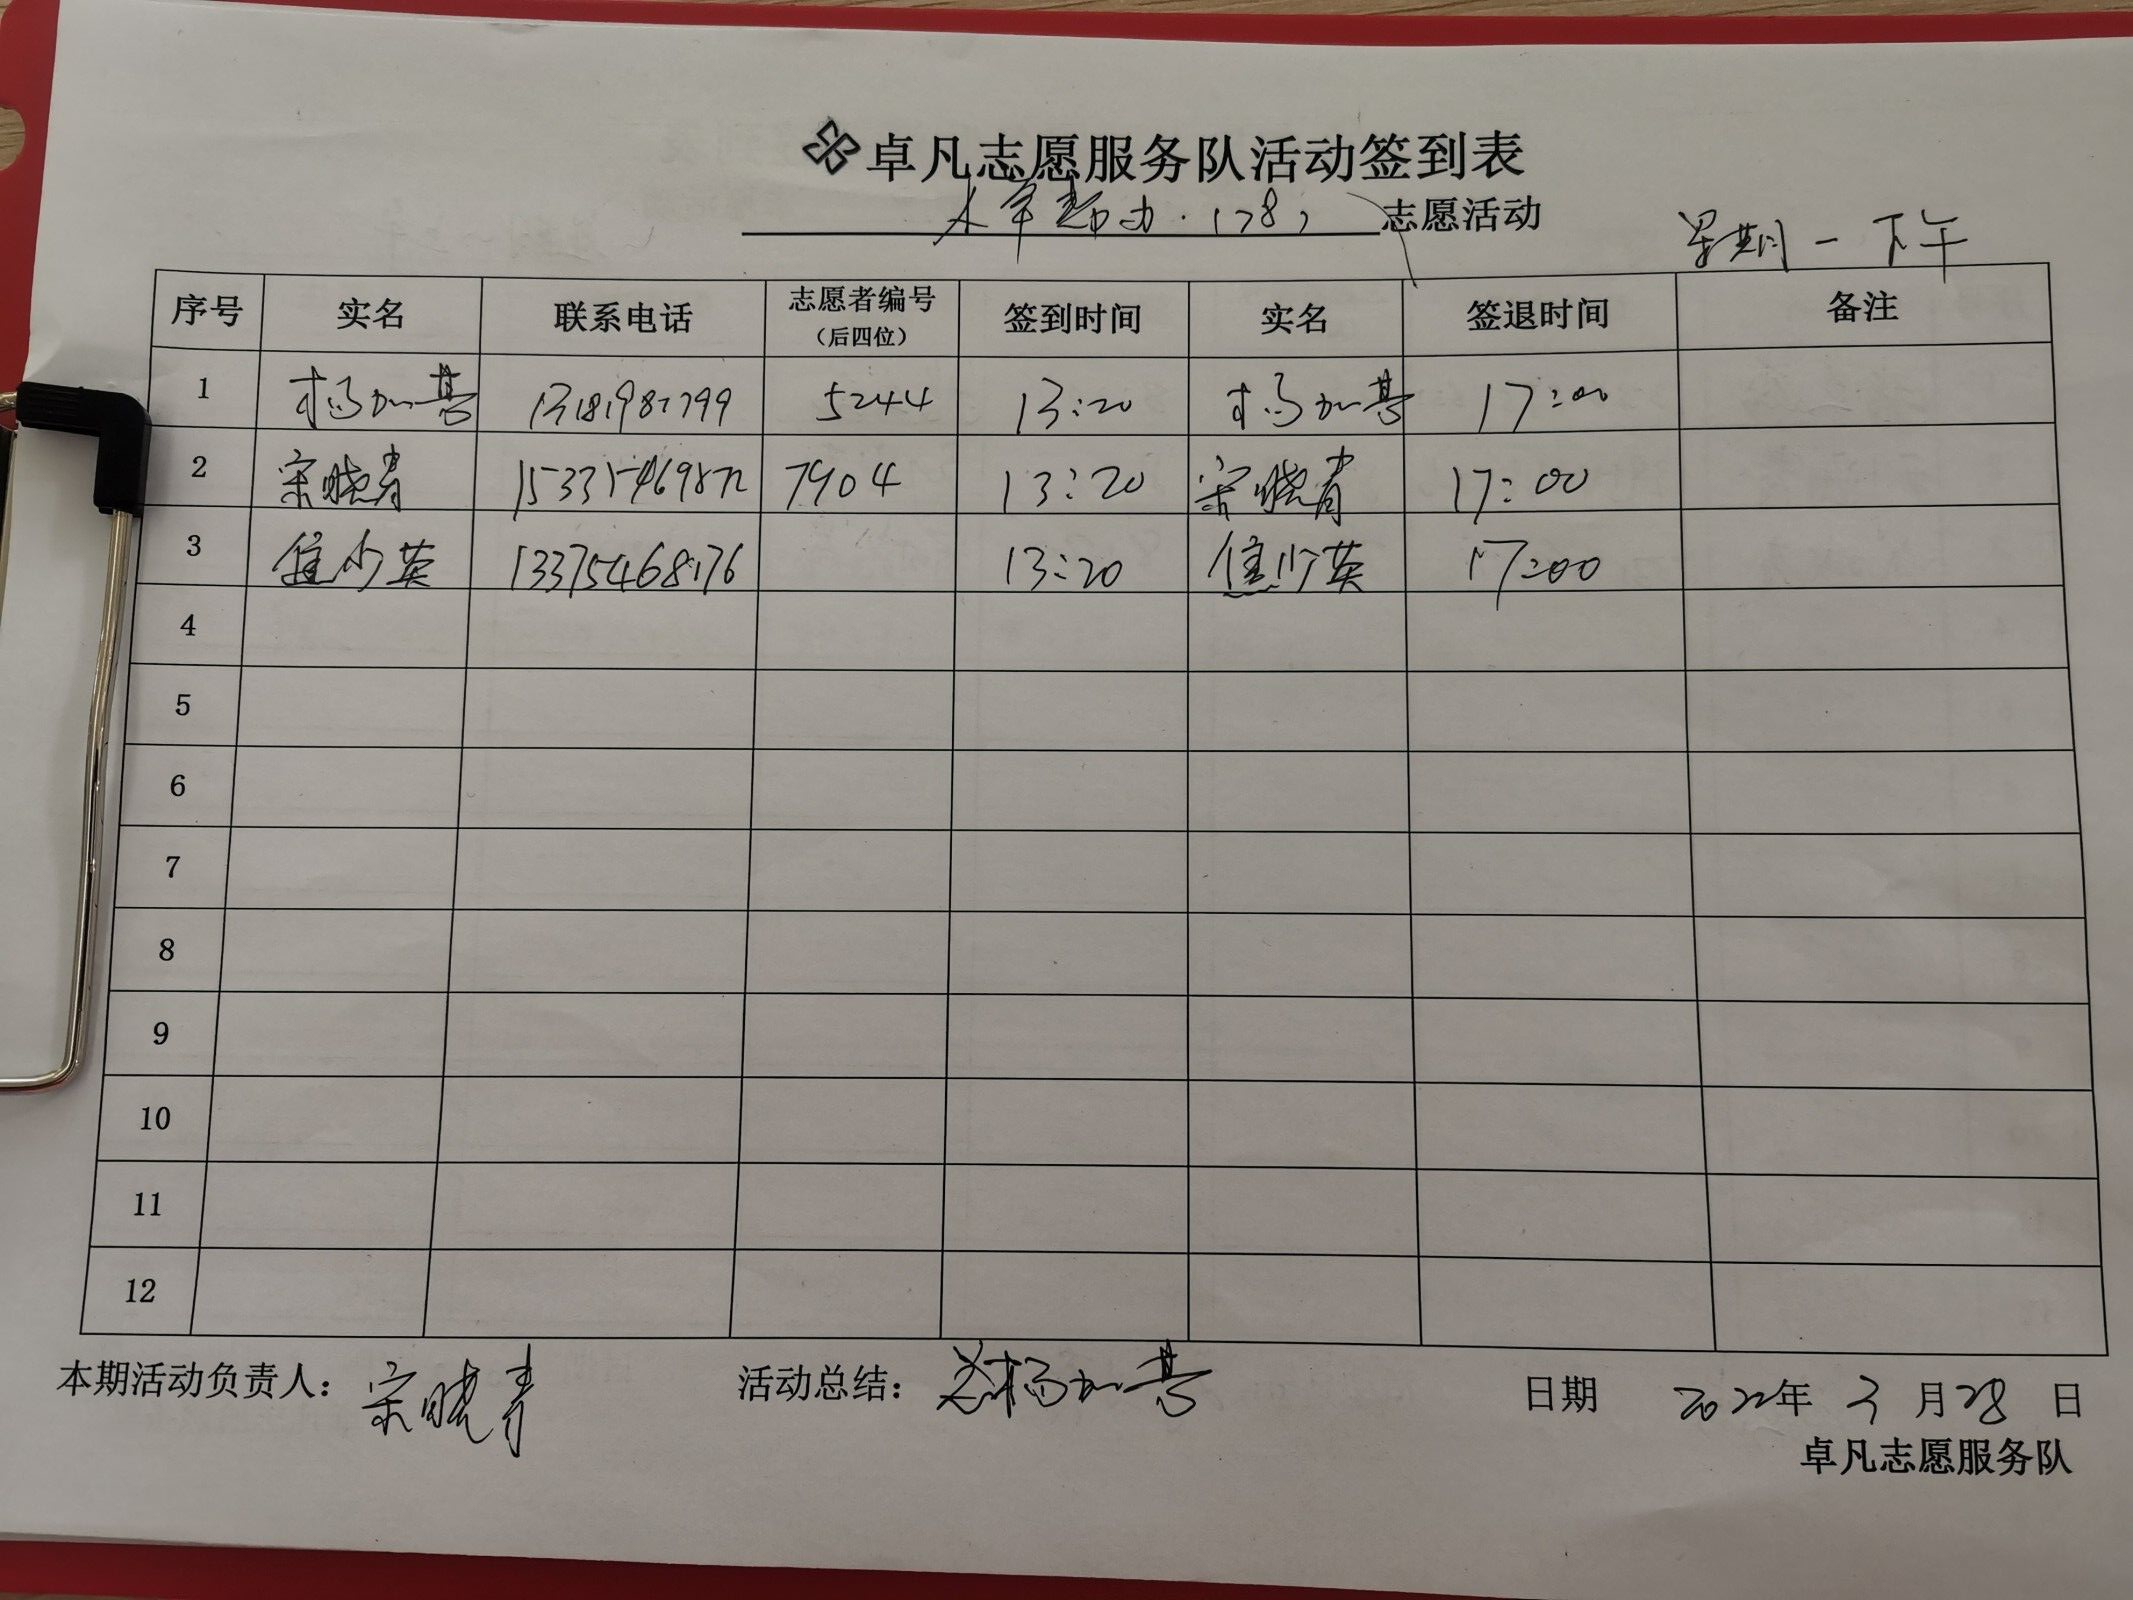 卓凡志愿服务队活动签到表
志愿活动
星期一下午
序号 实名 联系电话 志愿者编号（后四位） 签到时间 实名 签退时间 备注
1 杨加喜 5244 13:20 杨加喜 17:00
2 宋晓青 7904 13:20 宋晓青 17:00
3 13375468176 13:20 17:00
4
5
6
7
8
9
10
11
12
本期活动负责人：宋晓青 活动总结： 杨加喜 日期 2022年 3 月 28 日
卓凡志愿服务队